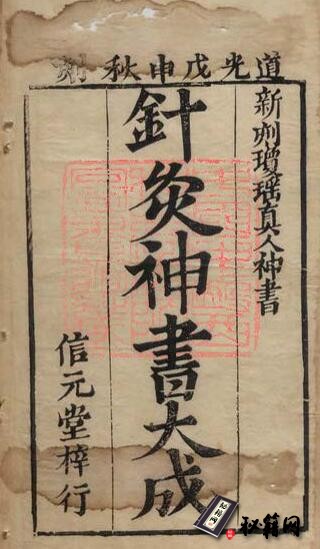 道光戊申秋刻
新刋瓊瑤真人神書
針灸神書大成
信元堂梓行
秘籍网